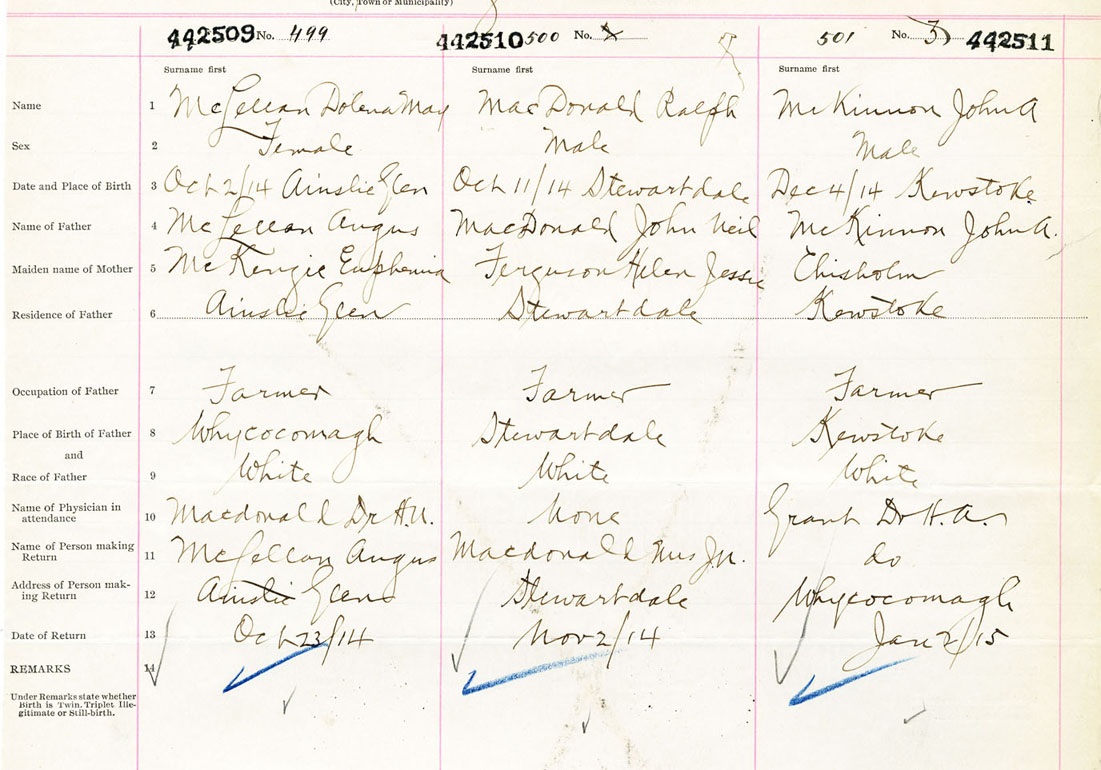 (City, Town or Municipality)
442509 No. 499 442510 500 No. 501 No. 3 442511
Surname first Surname first Surname first
Name 1 McLellan Dolena May MacDonald Ralph McKinnon John A
Sex 2 Female Male Male
Date and Place of Birth 3 Oct 2/14 Ainslie Glen Oct 11/14 Stewartdale Dec 4/14 Kewstoke
Name of Father 4 McLellan Angus MacDonald John Neil McKinnon John A.
Maiden name of Mother 5 McKenzie Euphemia Ferguson Helen Jessie Chisholm
Residence of Father 6 Ainslie Glen Stewartdale Kewstoke
Occupation of Father 7 Farmer Farmer Farmer
Place of Birth of Father 8 Whycocomagh Stewartdale Kewstoke
and
Race of Father 9 White White White
Name of Physician in
attendance 10 Macdonald Dr H.N. None Grant Dr H.A.
Name of Person making
Return 11 McLellan Angus Macdonald Mrs Jn. do
Address of Person mak-
ing Return 12 Ainslie Glen Stewartdale Whycocomagh
Date of Return 13 Oct 23/14 Nov 2/14 Jan 2/15
REMARKS 14
Under Remarks state whether
Birth is Twin. Triplet Ille-
gitimate or Still-birth.